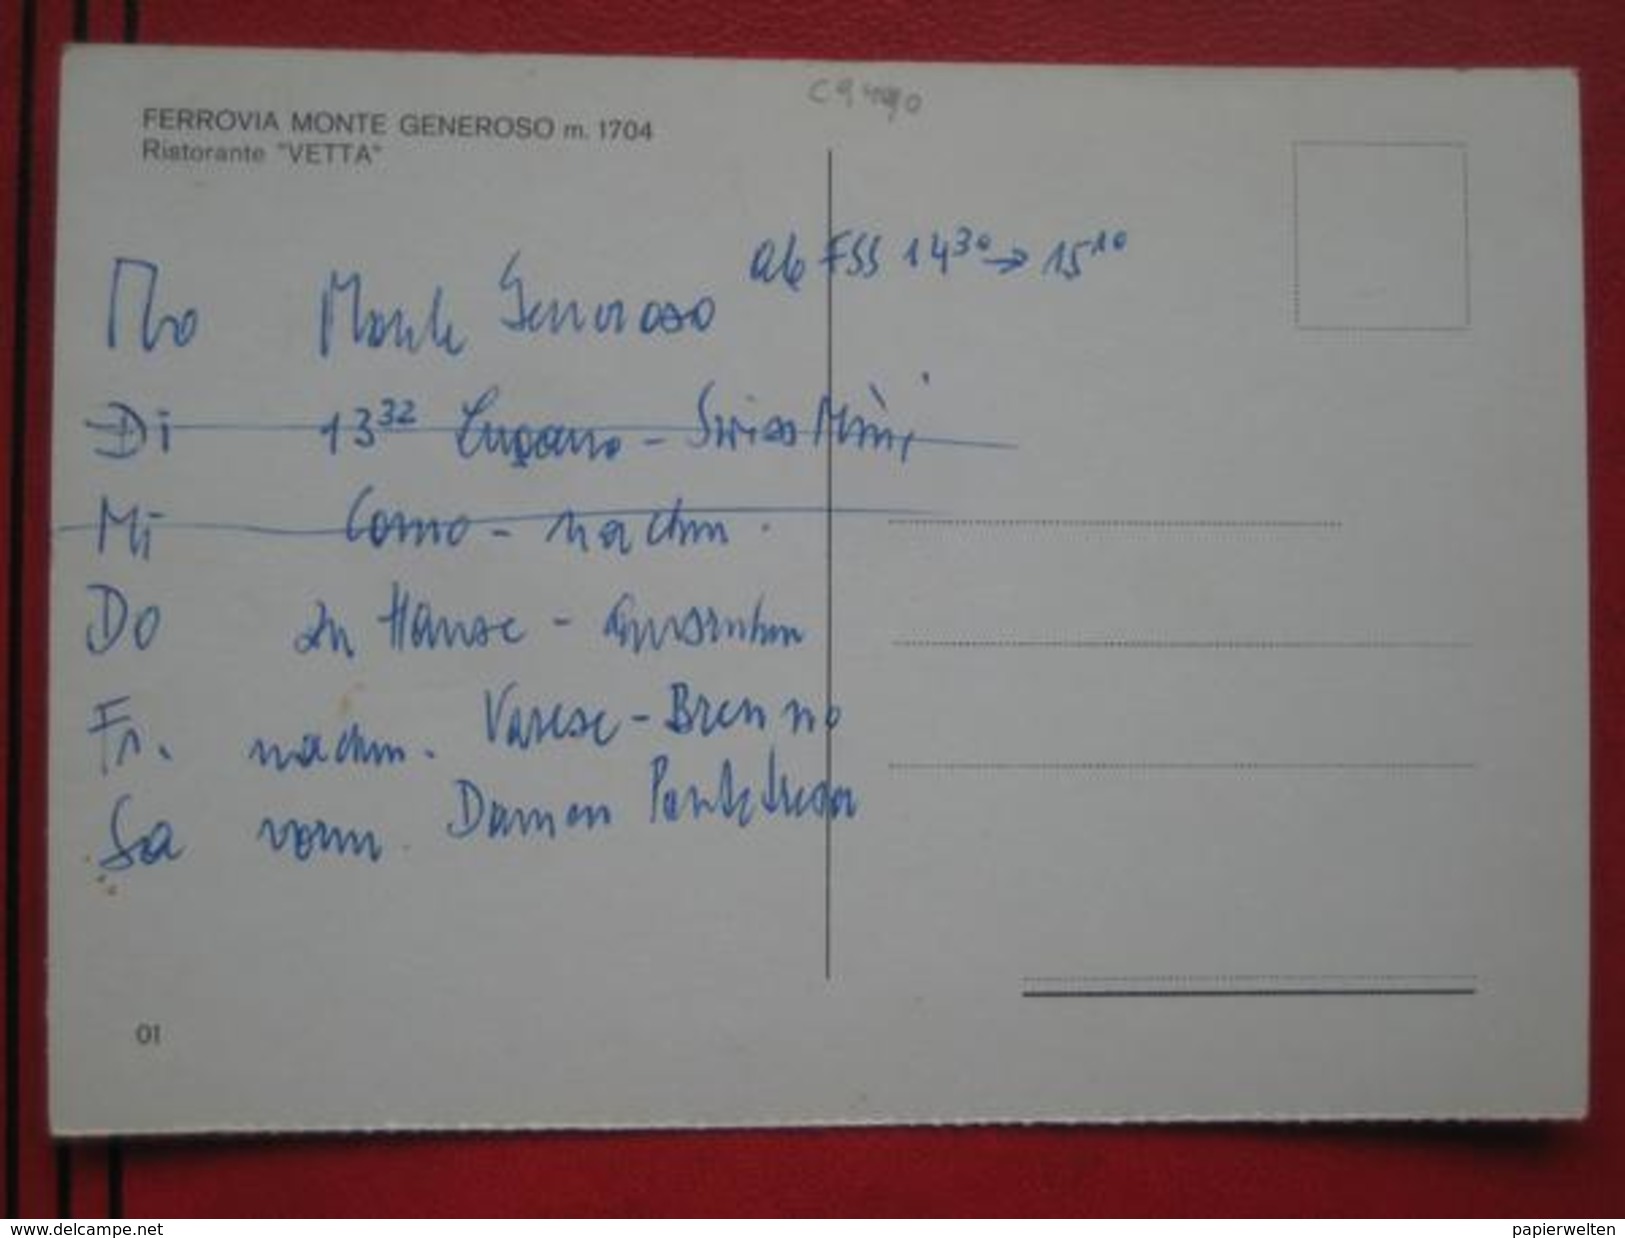 C9490
FERROVIA MONTE GENEROSO m. 1704
Ristorante "VETTA"
ab FSS 14 30 → 15 10
Mo Monte Generoso
Di 13 32 Lugano - Swiss Mini
Mi Como - nachm.
Do zu Hause - ausruhen
Fr. nachm. Varese - Brenno
Sa vorm. Damen Ponte Tresa
01
www.delcampe.net
papierwelten